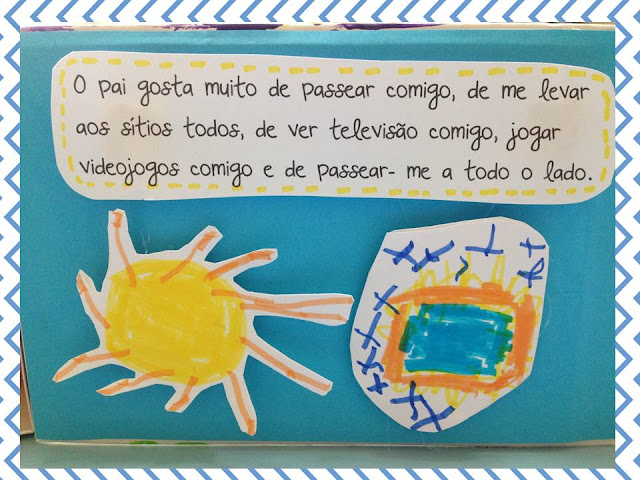 O pai gosta muito de passear comigo, de me levar
aos sítios todos, de ver televisão comigo, jogar
videojogos comigo e de passear- me a todo o lado.